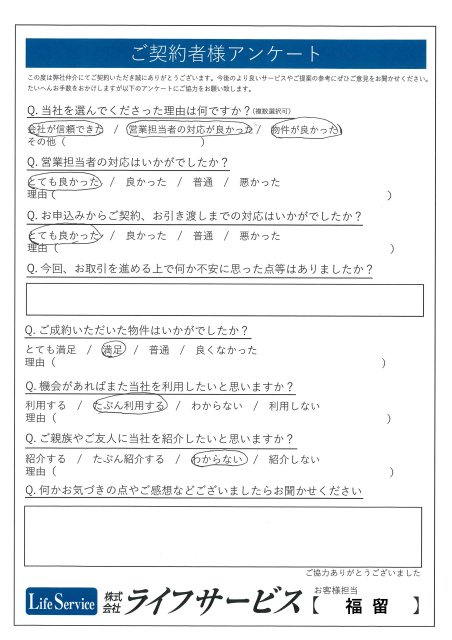 ご契約者様アンケート
この度は弊社仲介にてご契約いただき誠にありがとうございます。今後のより良いサービスやご提案の参考にぜひご意見をお聞かせください。
たいへんお手数をおかけしますが以下のアンケートにご協力をお願い致します。
Q. 当社を選んでくださった理由は何ですか？(複数選択可)
会社が信頼できた / 営業担当者の対応が良かった / 物件が良かった
その他（ ）
Q. 営業担当者の対応はいかがでしたか？
とても良かった / 良かった / 普通 / 悪かった
理由（ ）
Q. お申込みからご契約、お引き渡しまでの対応はいかがでしたか？
とても良かった / 良かった / 普通 / 悪かった
理由（ ）
Q. 今回、お取引を進める上で何か不安に思った点等はありましたか？
Q. ご成約いただいた物件はいかがでしたか？
とても満足 / 満足 / 普通 / 良くなかった
理由（ ）
Q. 機会があればまた当社を利用したいと思いますか？
利用する / たぶん利用する / わからない / 利用しない
理由（ ）
Q. ご親族やご友人に当社を紹介したいと思いますか？
紹介する / たぶん紹介する / わからない / 紹介しない
理由（ ）
Q. 何かお気づきの点やご感想などございましたらお聞かせください
ご協力ありがとうございました
Life Service 株式会社 ライフサービス
お客様担当
【 福留 】